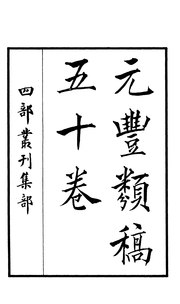 元豐類稿
五十卷
四部叢刊集部